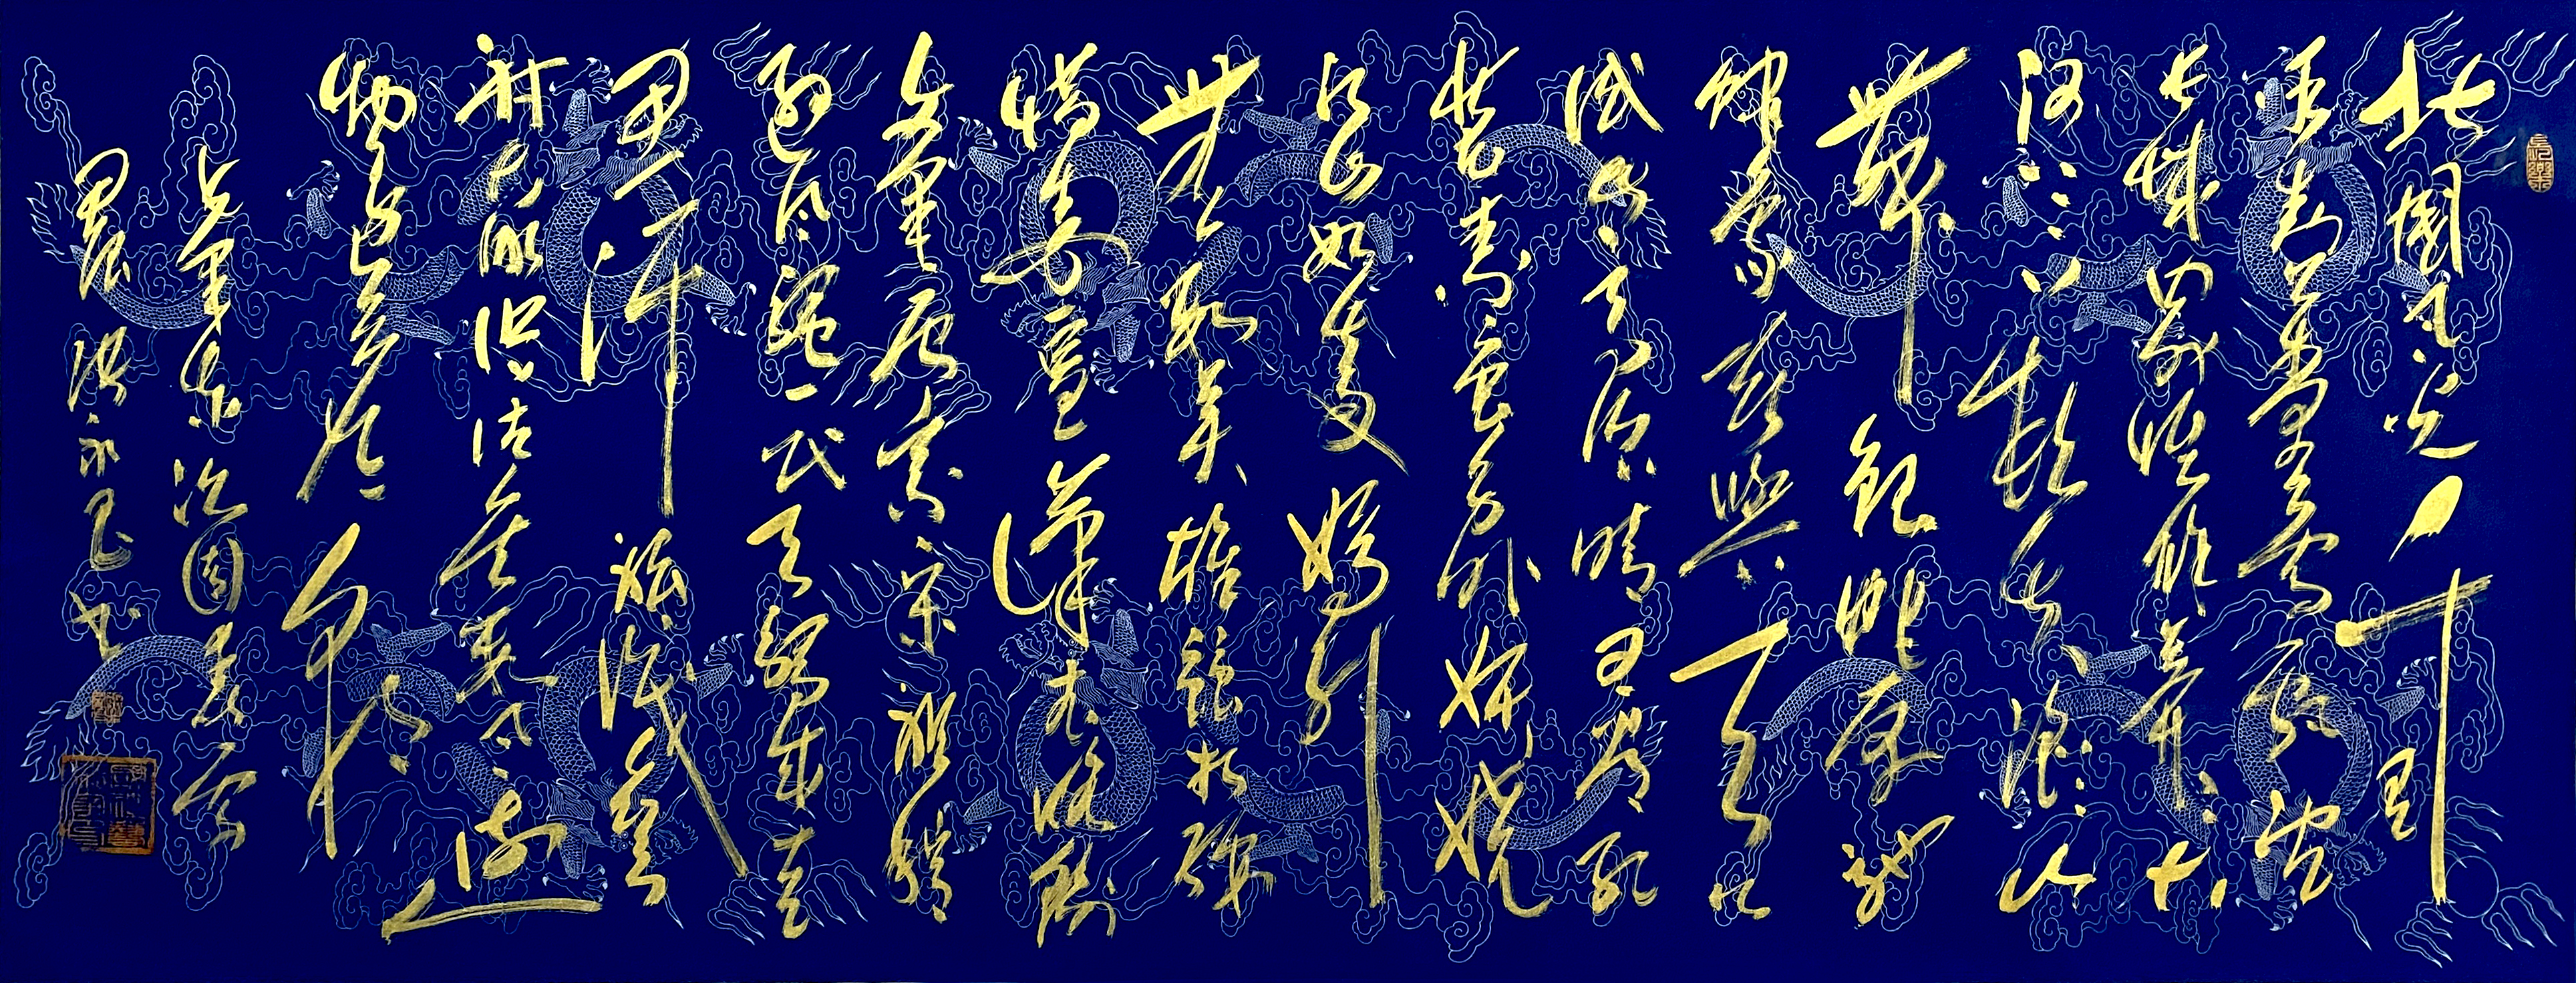 北国风光千里
冰封万里雪飘望
长城内外惟余莽莽大
河上下顿失滔滔山
舞银蛇原驰
蜡象欲与天公
试比高须晴日看红
装素裹分外妖娆
江山如此多娇引
无数英雄竞折腰
惜秦皇汉武略输
文采唐宗宋祖稍
逊风骚一代天骄成吉
思汗只识弯弓
射大雕俱往矣数风流人
物还看今朝
毛泽东沁园春雪
洪永书